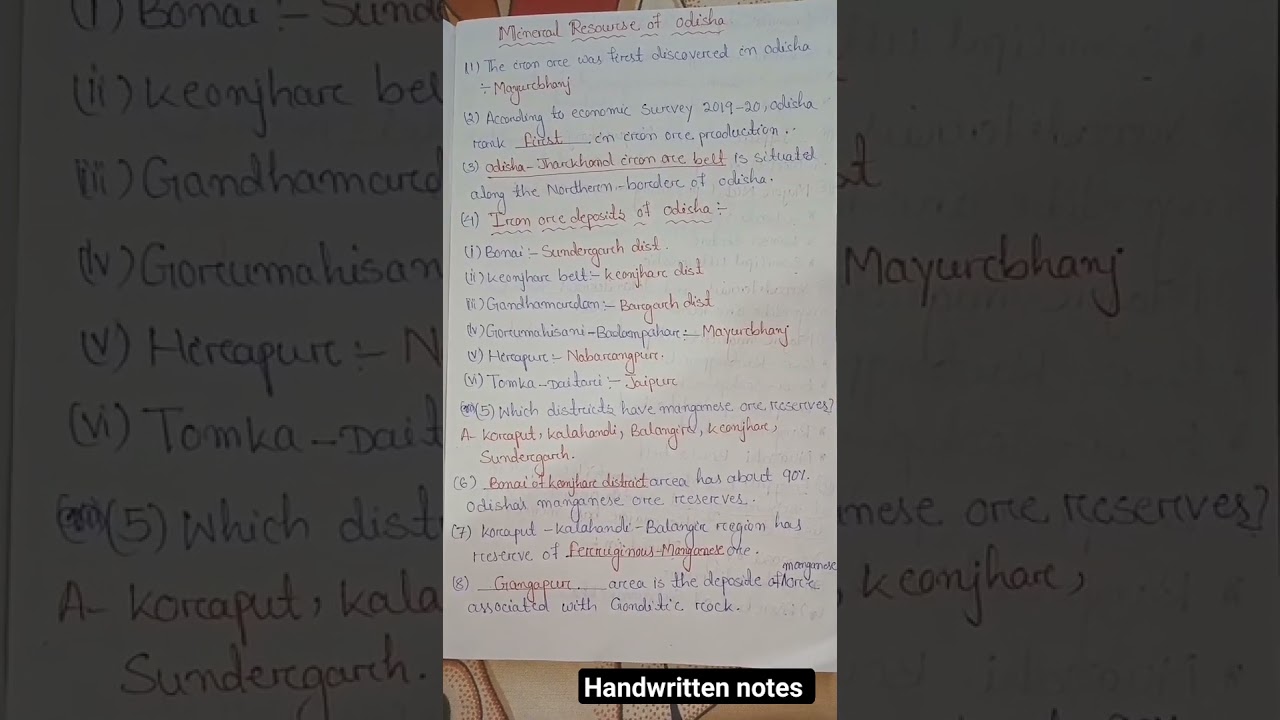 Mineral Resourse of Odisha
(1) The iron ore was first discovered in odisha
:- Mayurbhanj
(2) According to economic survey 2019-20, odisha
rank first in iron ore production.
(3) odisha-Jharkhand iron ore belt is situated
along the Northern-border of odisha.
(4) Iron ore deposits of odisha :-
(i) Bonai :- Sundergarh dist.
(ii) keonjhar belt :- keonjhar dist
(iii) Gandhamardan :- Bargarh dist
(iv) Gorumahisani-Badampahar :- Mayurbhanj
(v) Herapur :- Nabarangpur.
(vi) Tomka-Daitari :- Jaipur
(5) Which districts have manganese ore reserves?
A- koraput, kalahandi, Balangir, keonjhar,
Sundergarh.
(6) Bonai of keonjhar district area has about 90%
odisha's manganese ore reserves.
(7) koraput-kalahandi-Balangir region has
reserve of ferruginous-Manganese ore.
(8) Gangapur area is the deposide of manganese ore
associated with Gonditic rock.
Handwritten notes